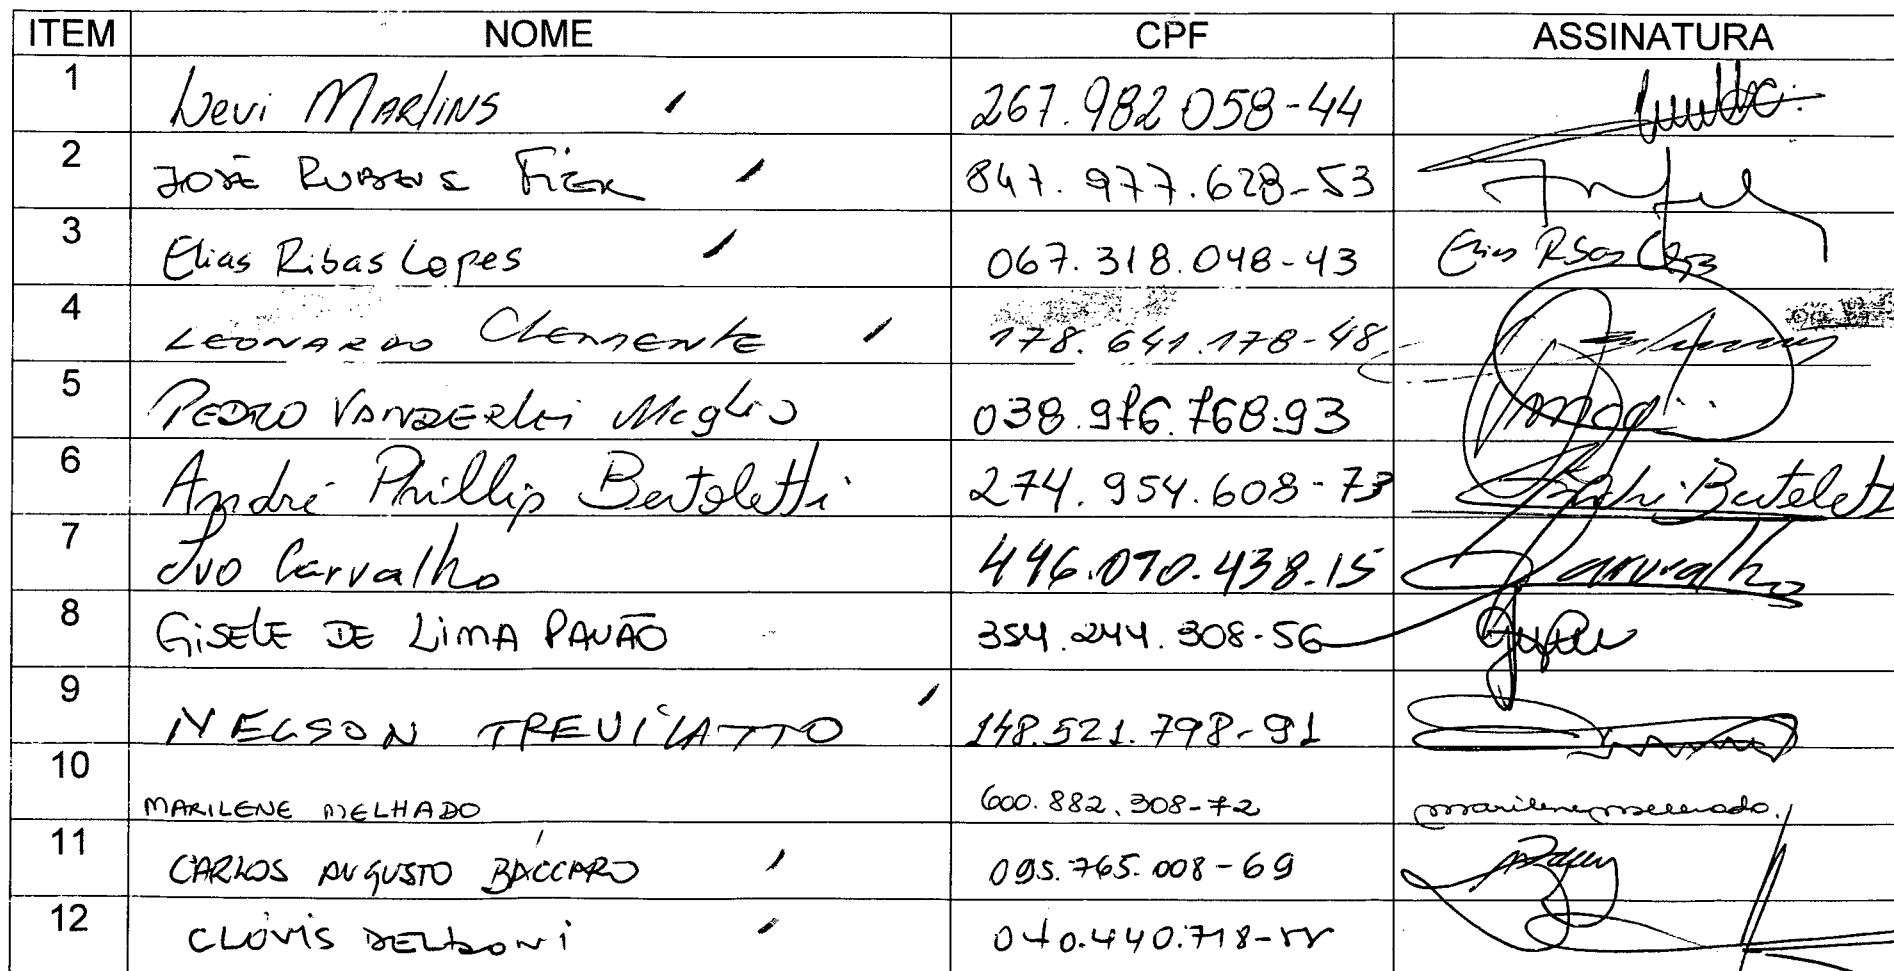 ITEM NOME CPF ASSINATURA
1 Levi MARTINS 267.982 058-44
2 JOSÉ RUBENS FIER 847.977.628-53
3 Elias Ribas Lopes 067.318.048-43 Elias Ribas Lopes
4 LEONARDO Clemente 178.641.178-48
5 PEDRO VANDERLEI Meglio 038.976.768.93
6 André Phillip Bertoletti 274.954.608-73 André Bertoletti
7 Ivo Carvalho 446.070.438.15 Carvalho
8 GISELE DE LIMA PAVÃO 354.244.308-56
9 NELSON TREVILATTO 148.521.798-91
10 MARILENE MELHADO 600.882.308-72 marilene melhado.
11 CARLOS AUGUSTO BÁCCARO 095.765.008-69
12 CLÓVIS DELBONI